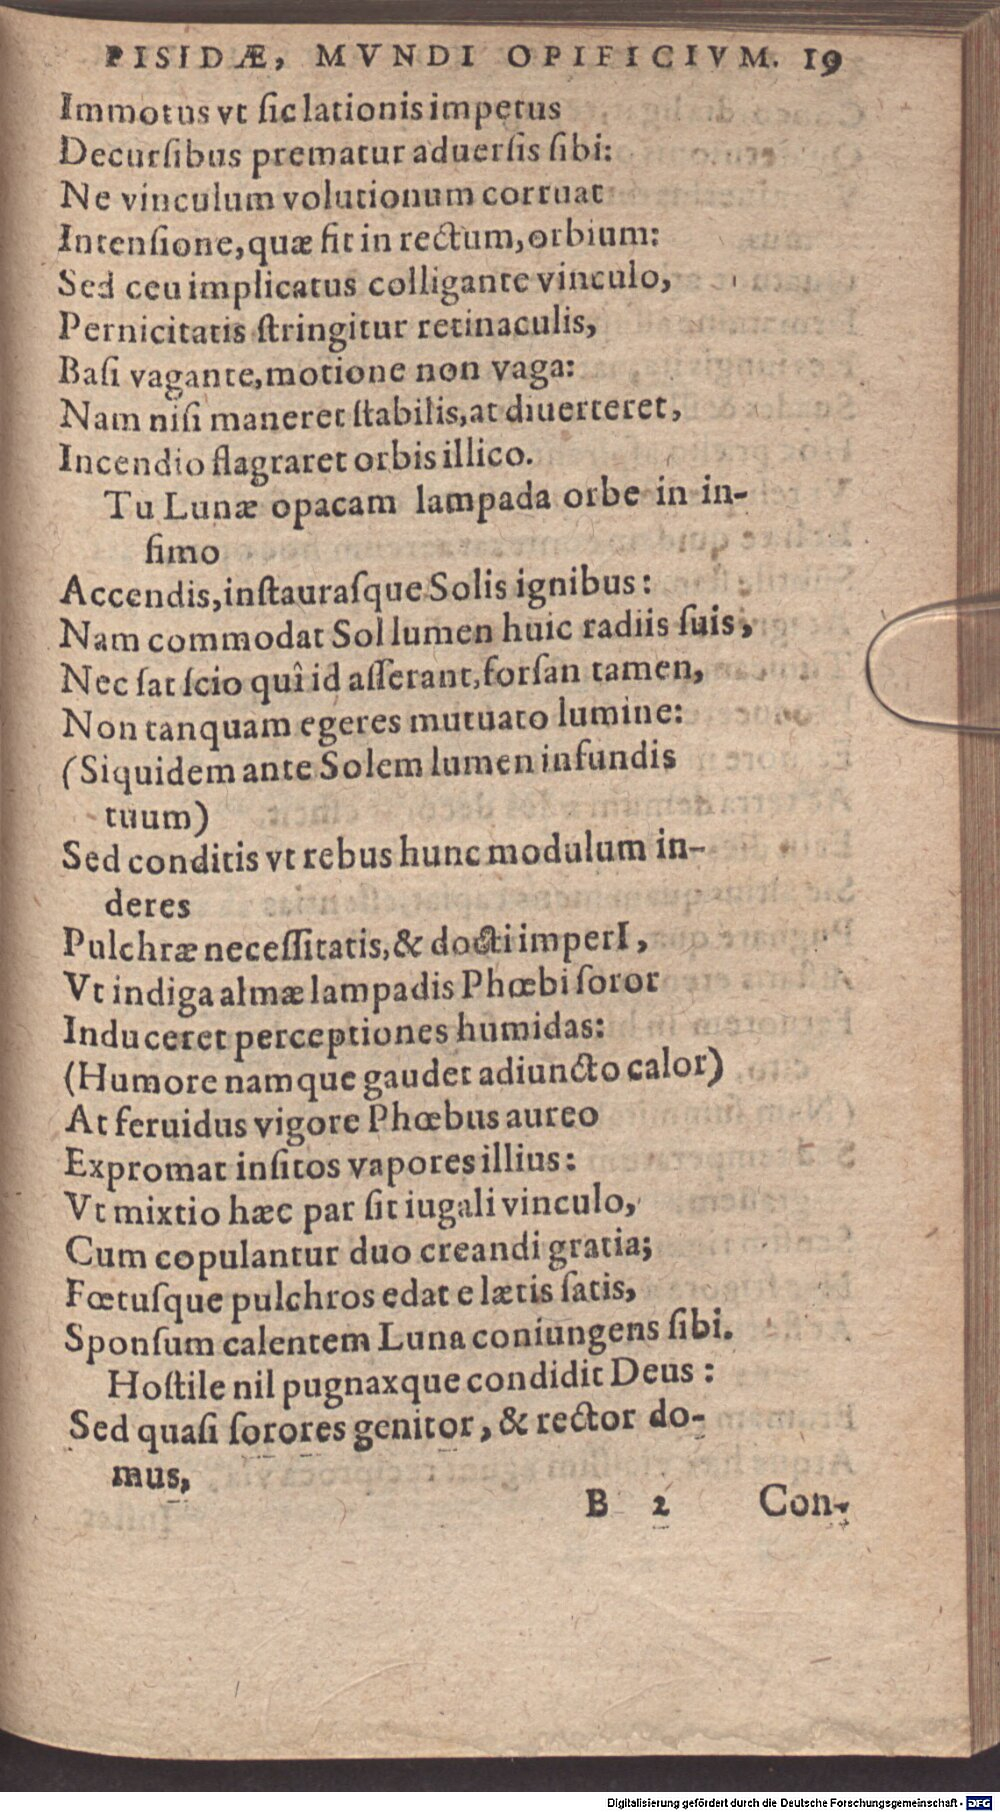 PISIDÆ, MVNDI OPIFICIVM. 19
Immotus vt ſic lationis impetus
Decurſibus prematur aduerſis ſibi:
Ne vinculum volutionum corruat
Intenſione, quæ fit in rectum, orbium:
Sed ceu implicatus colligante vinculo,
Pernicitatis ſtringitur retinaculis,
Baſi vagante, motione non vaga:
Nam niſi maneret ſtabilis, at diuerteret,
Incendio flagraret orbis illico.
Tu Lunæ opacam lampada orbe in in-
fimo
Accendis, inſtauraſque Solis ignibus:
Nam commodat Sol lumen huic radiis ſuis,
Nec ſat ſcio quî id aſſerant, forſan tamen,
Non tanquam egeres mutuato lumine:
(Siquidem ante Solem lumen infundis
tuum)
Sed conditis vt rebus hunc modulum in-
deres
Pulchræ neceſſitatis, & docti imperI,
Vt indiga almæ lampadis Phœbi ſoror
Induceret perceptiones humidas:
(Humore namque gaudet adiuncto calor)
At feruidus vigore Phœbus aureo
Expromat inſitos vapores illius:
Vt mixtio hæc par ſit iugali vinculo,
Cum copulantur duo creandi gratia;
Fœtuſque pulchros edat e lætis ſatis,
Sponſum calentem Luna coniungens ſibi.
Hoſtile nil pugnaxque condidit Deus:
Sed quaſi ſorores genitor, & rector do-
mus,
B 2 Con-
Digitalisierung gefördert durch die Deutsche Forschungsgemeinschaft - DFG